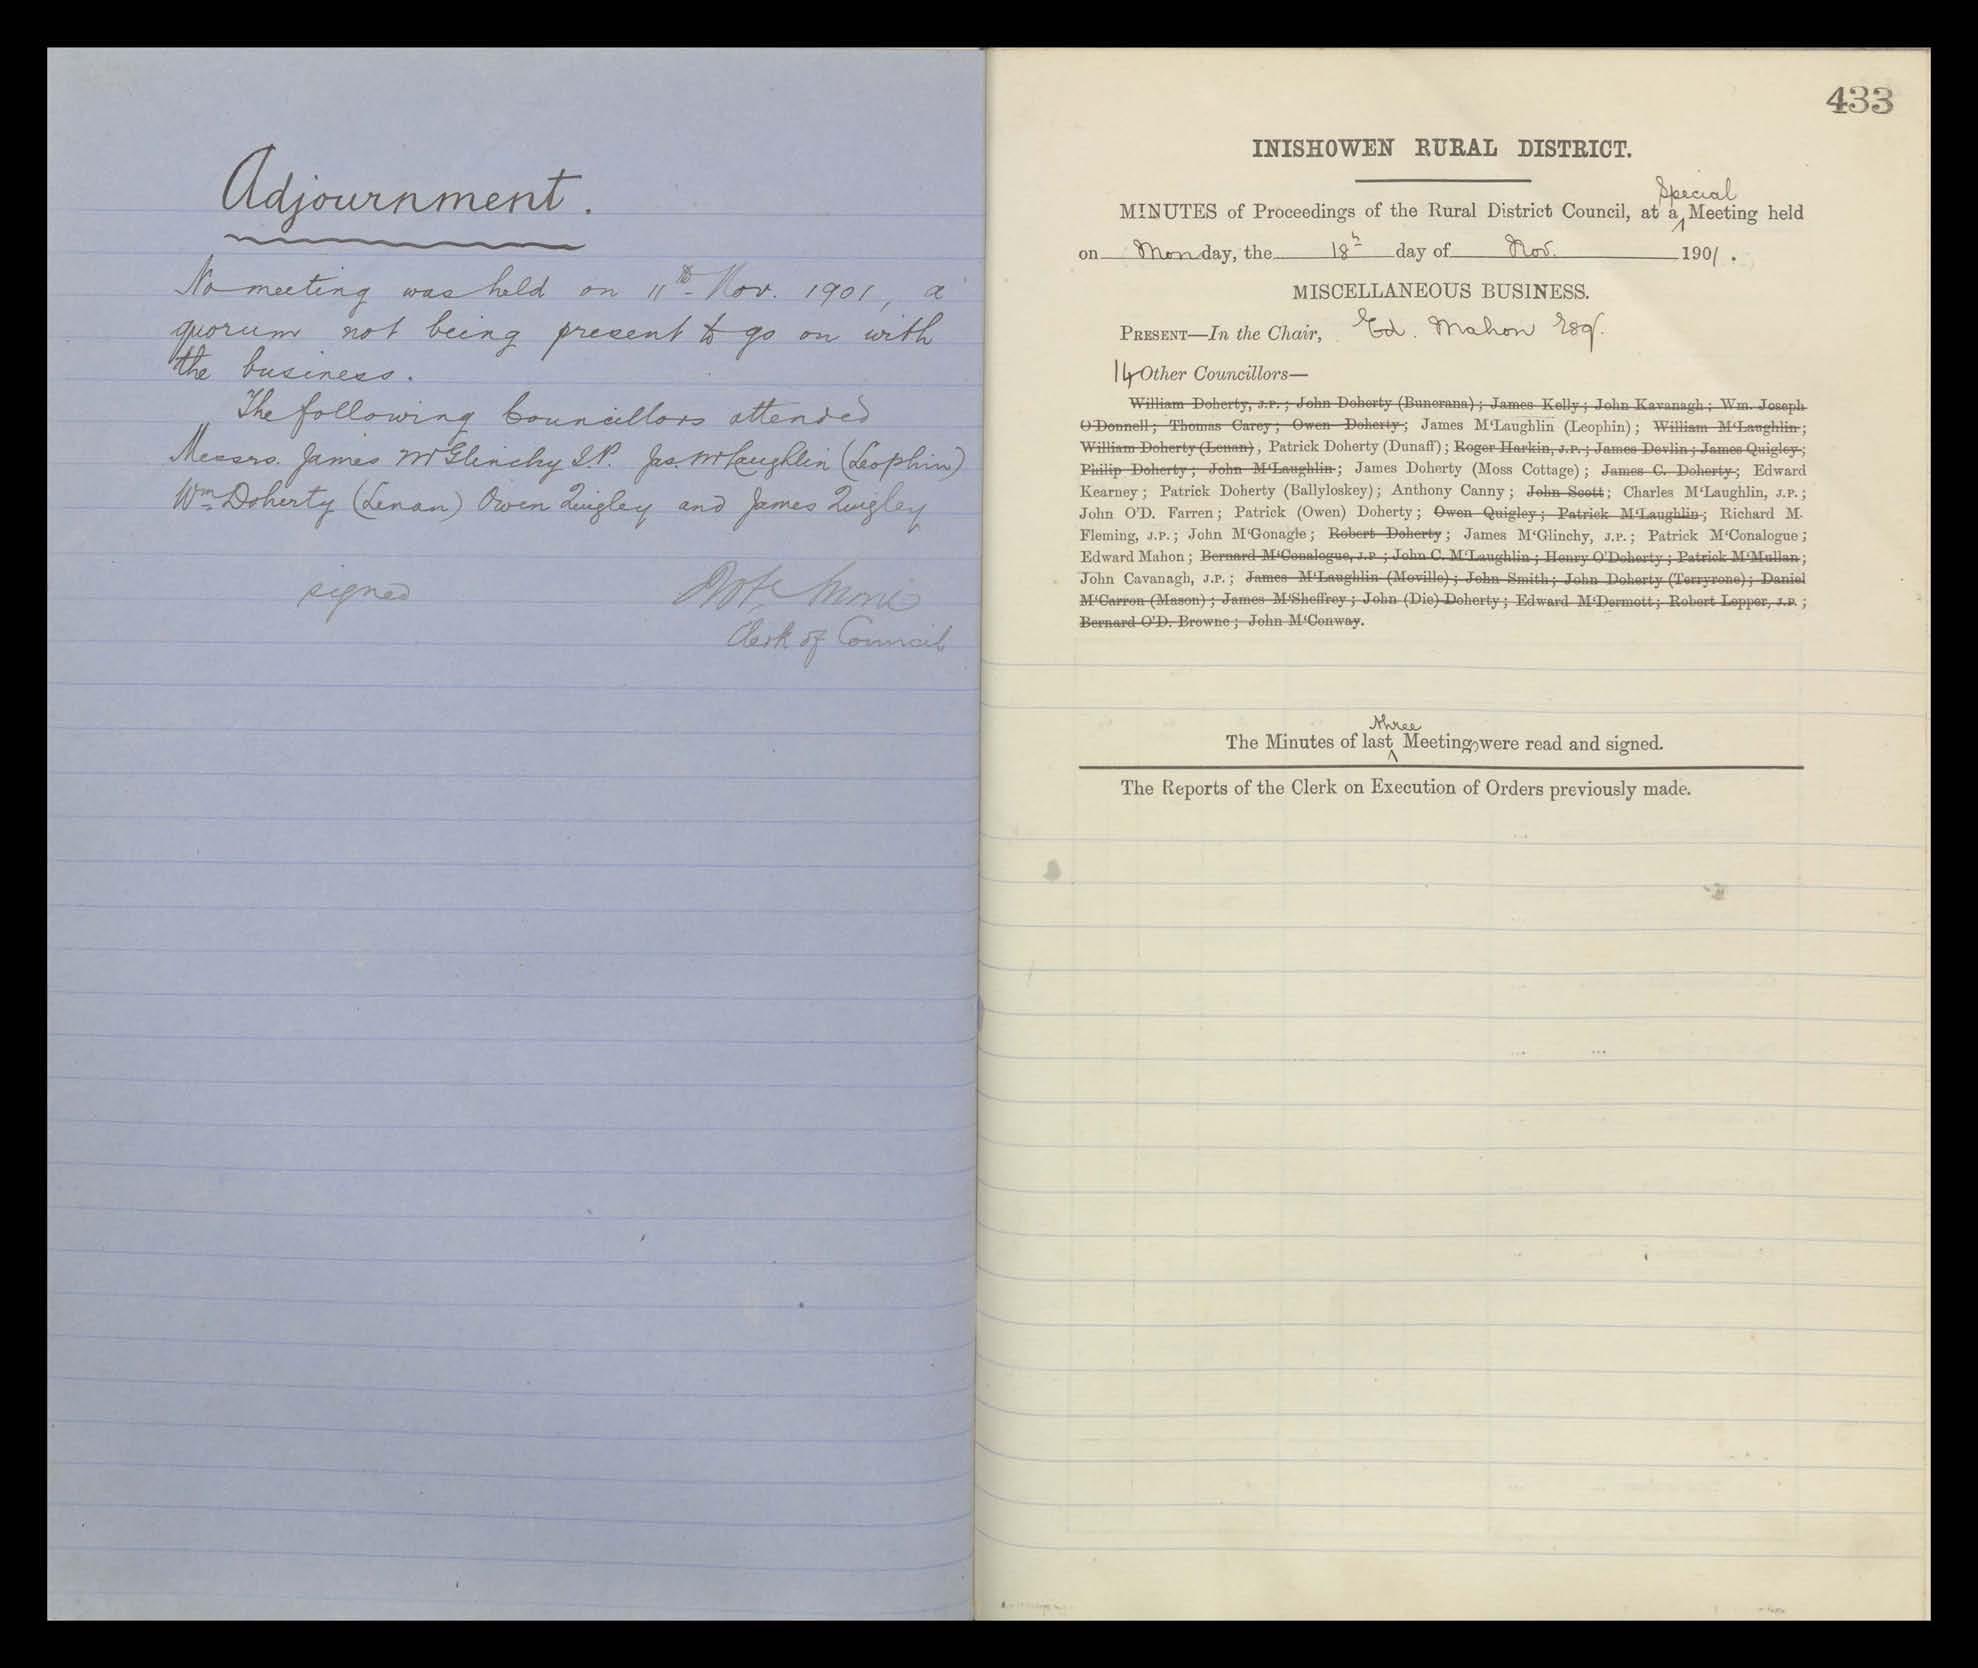 Adjournment.
No meeting was held on 11th Nov. 1901, a
quorum not being present to go on with
the business.
The following Councillors attended
Messrs. James McGlinchy J.P. Jas. McLaughlin (Leophin)
Wm Doherty (Lenan) Owen Quigley and James Quigley
signed
Clerk of Council
433
INISHOWEN RURAL DISTRICT.
Special
MINUTES of Proceedings of the Rural District Council, at a Meeting held
on Monday, the 18th day of Nov. 1901.
MISCELLANEOUS BUSINESS.
PRESENT—In the Chair, Ed. Mahon Esq.
14 Other Councillors—
William Doherty, J.P.; John Doherty (Buncrana); James Kelly; John Kavanagh; Wm. Joseph
O'Donnell; Thomas Carey; Owen Doherty; James M'Laughlin (Leophin); William M'Laughlin;
William Doherty (Lenan), Patrick Doherty (Dunaff); Roger Harkin, J.P.; James Devlin; James Quigley;
Philip Doherty; John M'Laughlin; James Doherty (Moss Cottage); James C. Doherty; Edward
Kearney; Patrick Doherty (Ballyloskey); Anthony Canny; John Scott; Charles M'Laughlin, J.P.;
John O'D. Farren; Patrick (Owen) Doherty; Owen Quigley; Patrick M'Laughlin; Richard M.
Fleming, J.P.; John M'Gonagle; Robert Doherty; James M'Glinchy, J.P.; Patrick M'Conalogue;
Edward Mahon; Bernard M'Conalogue, J.P.; John C. M'Laughlin; Henry O'Doherty; Patrick M'Mullan;
John Cavanagh, J.P.; James M'Laughlin (Moville); John Smith; John Doherty (Terryrone); Daniel
M'Carron (Mason); James M'Sheffrey; John (Die) Doherty; Edward M'Dermott; Robert Lepper, J.P.;
Bernard O'D. Browne; John M'Conway.
three
The Minutes of last Meetings were read and signed.
The Reports of the Clerk on Execution of Orders previously made.